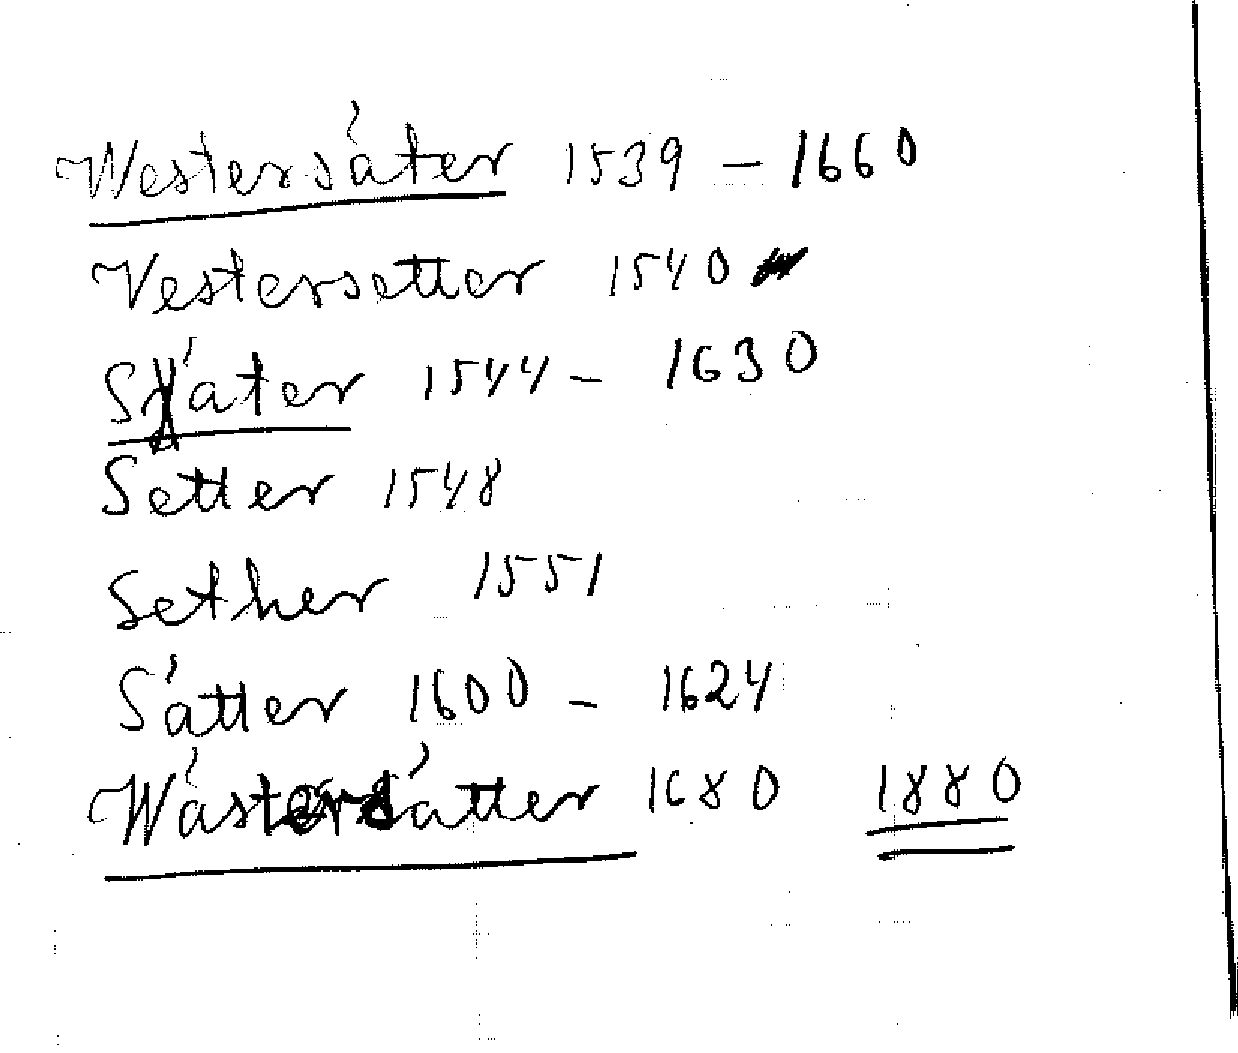 Westersäter 1539 – 1660
Vestersetter 1540
Säter 1544 – 1630
Setter 1548
Sether 1551
Sätter 1600 – 1624
Wästersätter 1680 1880